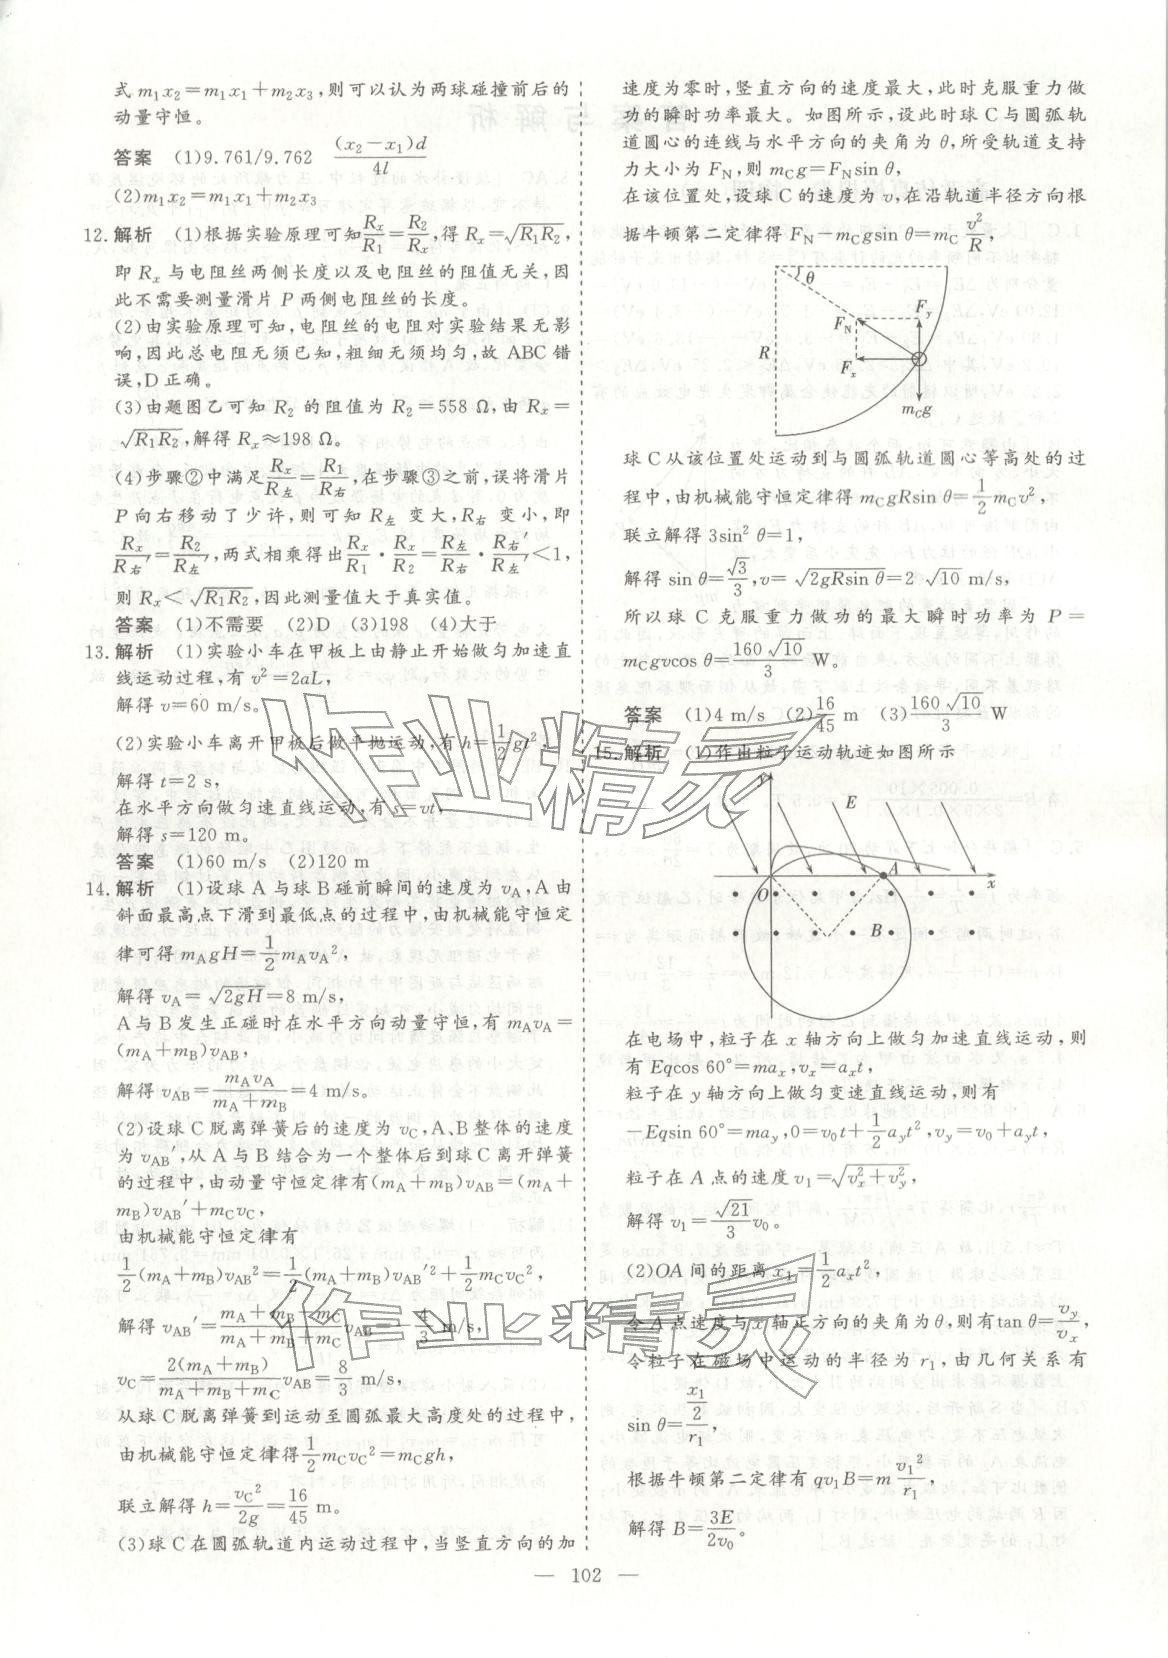 式 m₁x₂=m₁x₁+m₂x₃,则可以认为两球碰撞前后的
动量守恒。
答案 (1)9.761/9.762 (x₂-x₁)d/4l
(2)m₁x₂=m₁x₁+m₂x₃
12. 解析 (1)根据实验原理可知Rₓ/R₁=R₂/Rₓ,得 Rₓ=√(R₁R₂),
即 Rₓ 与电阻丝两侧长度以及电阻丝的阻值无关,因
此不需要测量滑片 P 两侧电阻丝的长度。
(2)由实验原理可知,电阻丝的电阻对实验结果无影
响,因此总电阻无须已知,粗细无须均匀,故 ABC 错
误,D正确。
(3)由题图乙可知 R₂ 的阻值为 R₂=558 Ω,由 Rₓ=
√(R₁R₂),解得 Rₓ≈198 Ω。
(4)步骤②中满足Rₓ/R左=R₁/R右,在步骤③之前,误将滑片
P 向右移动了少许,则可知 R左 变大,R右 变小,即
Rₓ/R右′=R₂/R左′,两式相乘得出Rₓ/R₁·Rₓ/R₂=R左/R左′·R右′/R右<1,
则 Rₓ<√(R₁R₂),因此测量值大于真实值。
答案 (1)不需要 (2)D (3)198 (4)大于
13. 解析 (1)实验小车在甲板上由静止开始做匀加速直
线运动过程,有 v²=2aL,
解得 v=60 m/s。
(2)实验小车离开甲板后做平抛运动,有 h=1/2gt²,
解得 t=2 s,
在水平方向做匀速直线运动,有 s=vt,
解得 s=120 m。
答案 (1)60 m/s (2)120 m
14. 解析 (1)设球 A 与球 B 碰前瞬间的速度为 vA,A 由
斜面最高点下滑到最低点的过程中,由机械能守恒定
律可得 mAgH=1/2mAvA²,
解得 vA=√(2gH)=8 m/s,
A与B发生正碰时在水平方向动量守恒,有 mAvA=
(mA+mB)vAB,
解得 vAB=mAvA/(mA+mB)=4 m/s。
(2)设球 C 脱离弹簧后的速度为 vC,A、B整体的速度
为 vAB′,从 A 与 B 结合为一个整体后到球 C 离开弹簧
的过程中,由动量守恒定律有(mA+mB)vAB=(mA+
mB)vAB′+mCvC,
由机械能守恒定律有
1/2(mA+mB)vAB²=1/2(mA+mB)vAB′²+1/2mCvC²,
解得 vAB′=(mA+mB-mC)/(mA+mB+mC)vAB=4/3 m/s,
vC=2(mA+mB)/(mA+mB+mC)vAB=8/3 m/s,
从球 C 脱离弹簧到运动至圆弧最大高度处的过程中,
由机械能守恒定律得1/2mCvC²=mCgh,
联立解得 h=vC²/2g=16/45 m。
(3)球 C 在圆弧轨道内运动过程中,当竖直方向的加
速度为零时,竖直方向的速度最大,此时克服重力做
功的瞬时功率最大。如图所示,设此时球 C 与圆弧轨
道圆心的连线与水平方向的夹角为 θ,所受轨道支持
力大小为 FN,则 mCg=FNsin θ,
在该位置处,设球C的速度为 v,在沿轨道半径方向根
据牛顿第二定律得 FN-mCgsin θ=mC v²/R,
θ
Fy
FN
R
Fx
mCg
球 C从该位置处运动到与圆弧轨道圆心等高处的过
程中,由机械能守恒定律得 mCgRsin θ=1/2mCv²,
联立解得 3sin² θ=1,
解得 sin θ=√3/3,v=√(2gRsin θ)=2√10 m/s,
所以球 C 克服重力做功的最大瞬时功率为 P=
mCgvcos θ=160√10/3 W。
答案 (1)4 m/s (2)16/45 m (3)160√10/3 W
15. 解析 (1)作出粒子运动轨迹如图所示
y
E
O
A
x
B
在电场中,粒子在 x 轴方向上做匀加速直线运动,则
有 Eqcos 60°=maₓ,vₓ=aₓt,
粒子在 y 轴方向上做匀变速直线运动,则有
-Eqsin 60°=may,0=v₀t+1/2ayt²,vy=v₀+ayt,
粒子在 A 点的速度 v₁=√(vₓ²+vy²),
解得 v₁=√21/3 v₀。
(2)OA 间的距离 x₁=1/2aₓt²,
令 A 点速度与 x 轴正方向的夹角为 θ,则有tan θ=vy/vₓ,
令粒子在磁场中运动的半径为 r₁,由几何关系有
sin θ=(x₁/2)/r₁,
根据牛顿第二定律有 qv₁B=m v₁²/r₁,
解得 B=3E/2v₀。
— 102 —
作业精灵
作业精灵